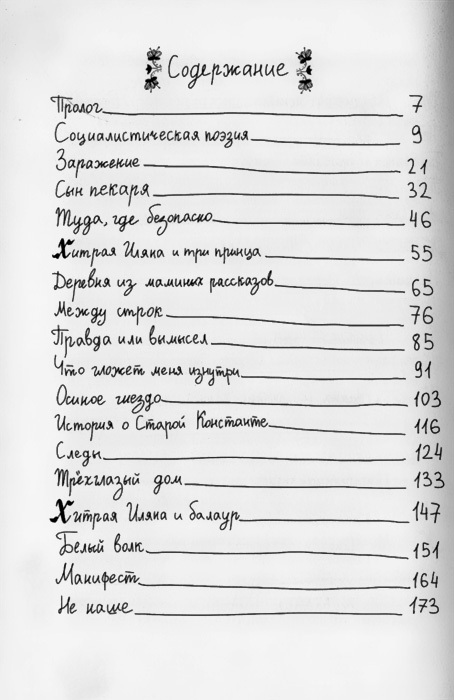 Содержание
Пролог 7
Социалистическая поэзия 9
Заражение 21
Сын пекаря 32
Туда, где безопасно 46
Хитрая Иляна и три принца 55
Деревня из маминых рассказов 65
Между строк 76
Правда или вымысел 85
Что гложет меня изнутри 91
Осиное гнездо 103
История о Старой Константе 116
Следы 124
Трёхглазый дом 133
Хитрая Иляна и балаур 147
Белый волк 151
Манифест 164
Не наше 173